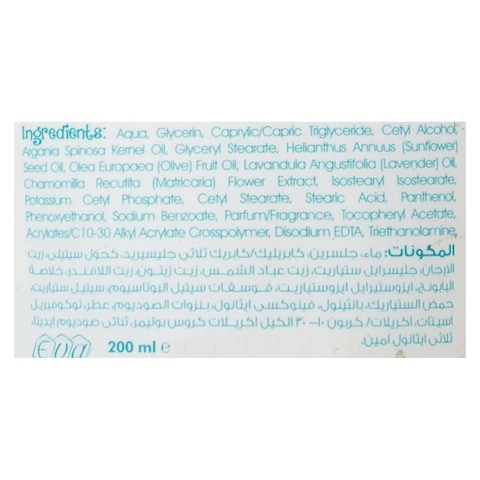 Ingredients: Aqua, Glycerin, Caprylic/Capric Triglyceride, Cetyl Alcohol,
Argania Spinosa Kernel Oil, Glyceryl Stearate, Helianthus Annuus (Sunflower)
Seed Oil, Olea Europaea (Olive) Fruit Oil, Lavandula Angustifolia (Lavender) Oil,
Chamomilla Recutita (Matricaria) Flower Extract, Isostearyl Isostearate,
Potassium Cetyl Phosphate, Cetyl Stearate, Stearic Acid, Panthenol,
Phenoxyethanol, Sodium Benzoate, Parfum/Fragrance, Tocopheryl Acetate,
Acrylates/C10-30 Alkyl Acrylate Crosspolymer, Disodium EDTA, Triethanolamine,
المكونات: ماء، جلسرين، كابريليك/كابريك ثلاثى جليسيريد، كحول سيتيلى، زيت
الارجان، جليسرايل ستياريت، زيت عباد الشمس، زيت زيتون، زيت اللافندر، خلاصة
البابونج، ايزوستيرايل ايزوستياريت، فوسفات سيتيل البوتاسيوم، سيتيل ستياريت،
حمض الستياريك، بانثينول، فينوكسى ايثانول، بنزوات الصوديوم، عطر، توكوفيريل
أسيتات، أكريلات/ كربون ١٠-٣٠ الكيل اكريلات كروس بوليمر، ثنائى صوديوم ايديتا،
ثلاثى ايثانول أمين.
Eva 200 ml e